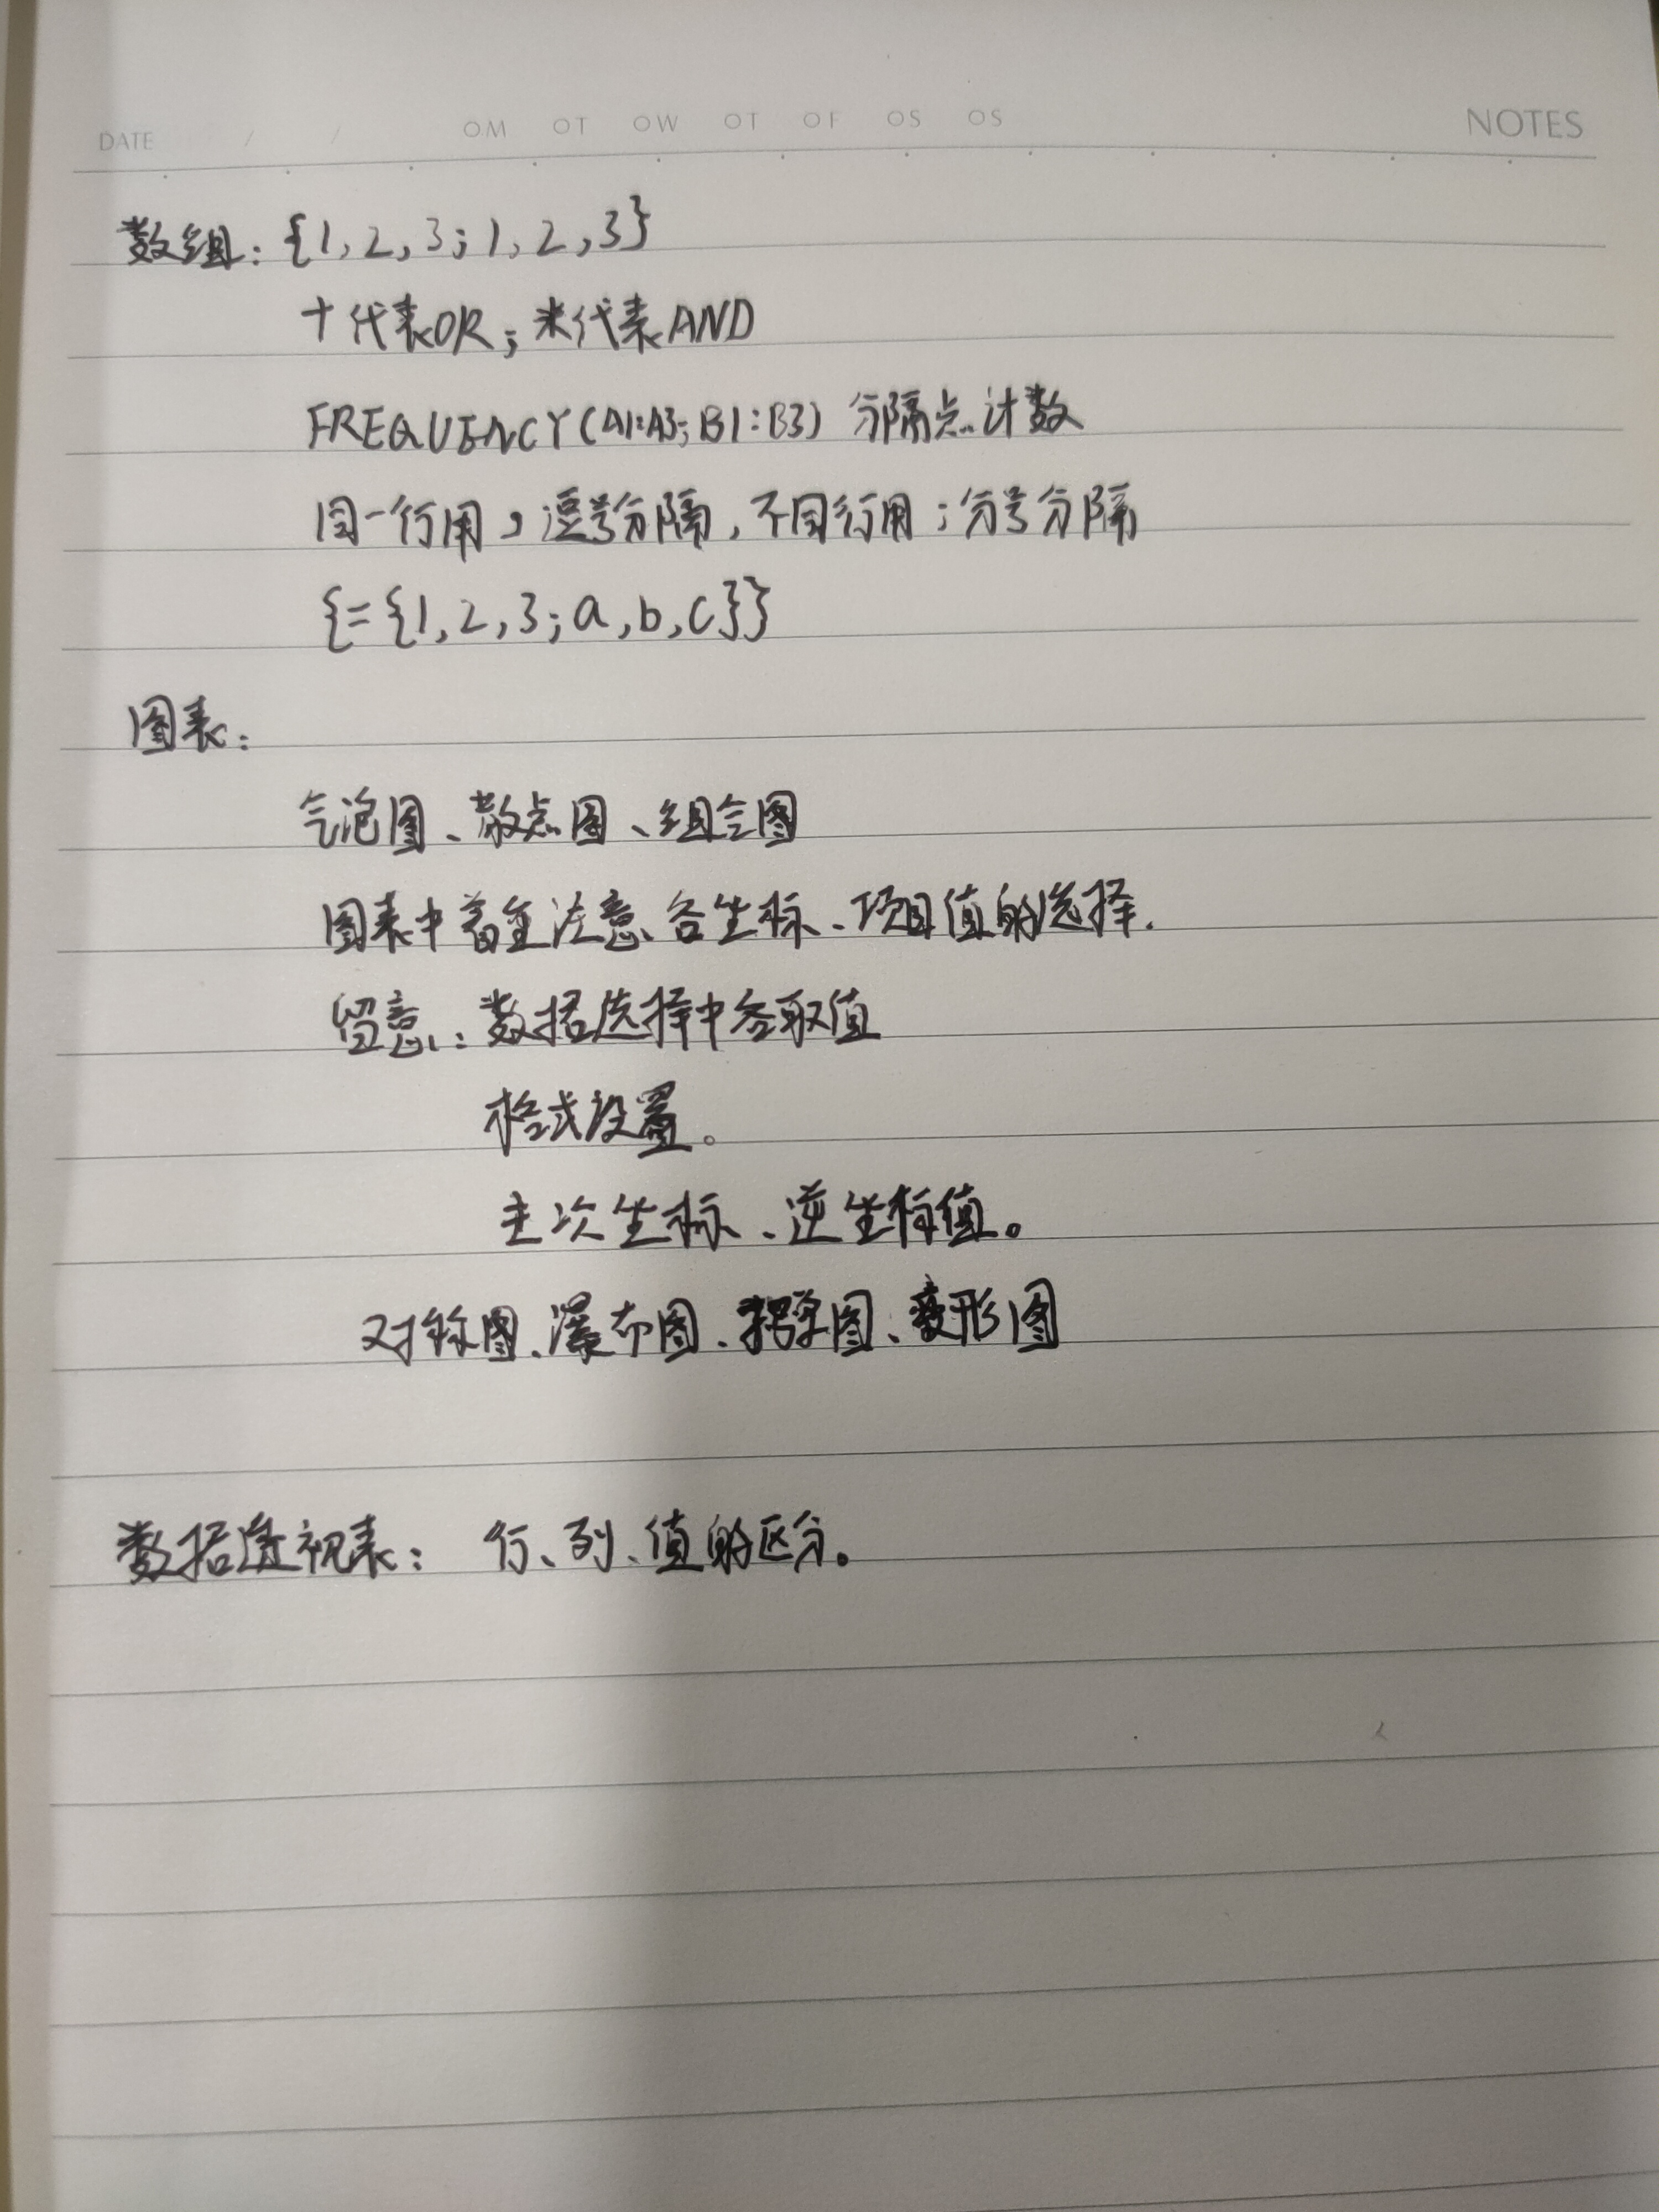 DATE / / OM OT OW OT OF OS OS NOTES
数组：{1，2，3；1，2，3}
+代表OR；*代表AND
FREQUENCY(A1:A3；B1：B3) 分隔点计数
同一行用，逗号分隔，不同行用；分号分隔
{={1,2,3;a,b,c}}
图表：
气泡图、散点图、组合图
图表中着重注意各坐标、项目值的选择.
留意：数据选择中各取值
格式设置。
主次坐标、逆坐标值。
对称图、瀑布图、图、变形图
数据透视表： 行、列、值的区分。